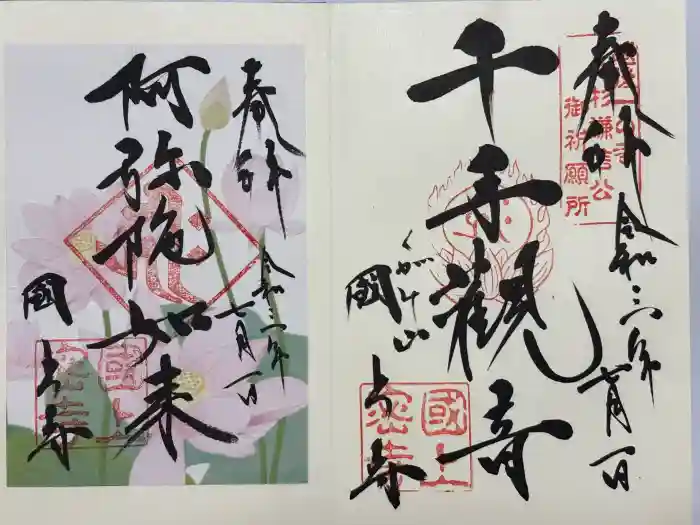 奉拝
令和三年七月一日
上杉謙信公
御祈願所
千手觀音
くがみ山
國上寺
奉拝
令和三年七月一日
阿弥陀如来
國上寺